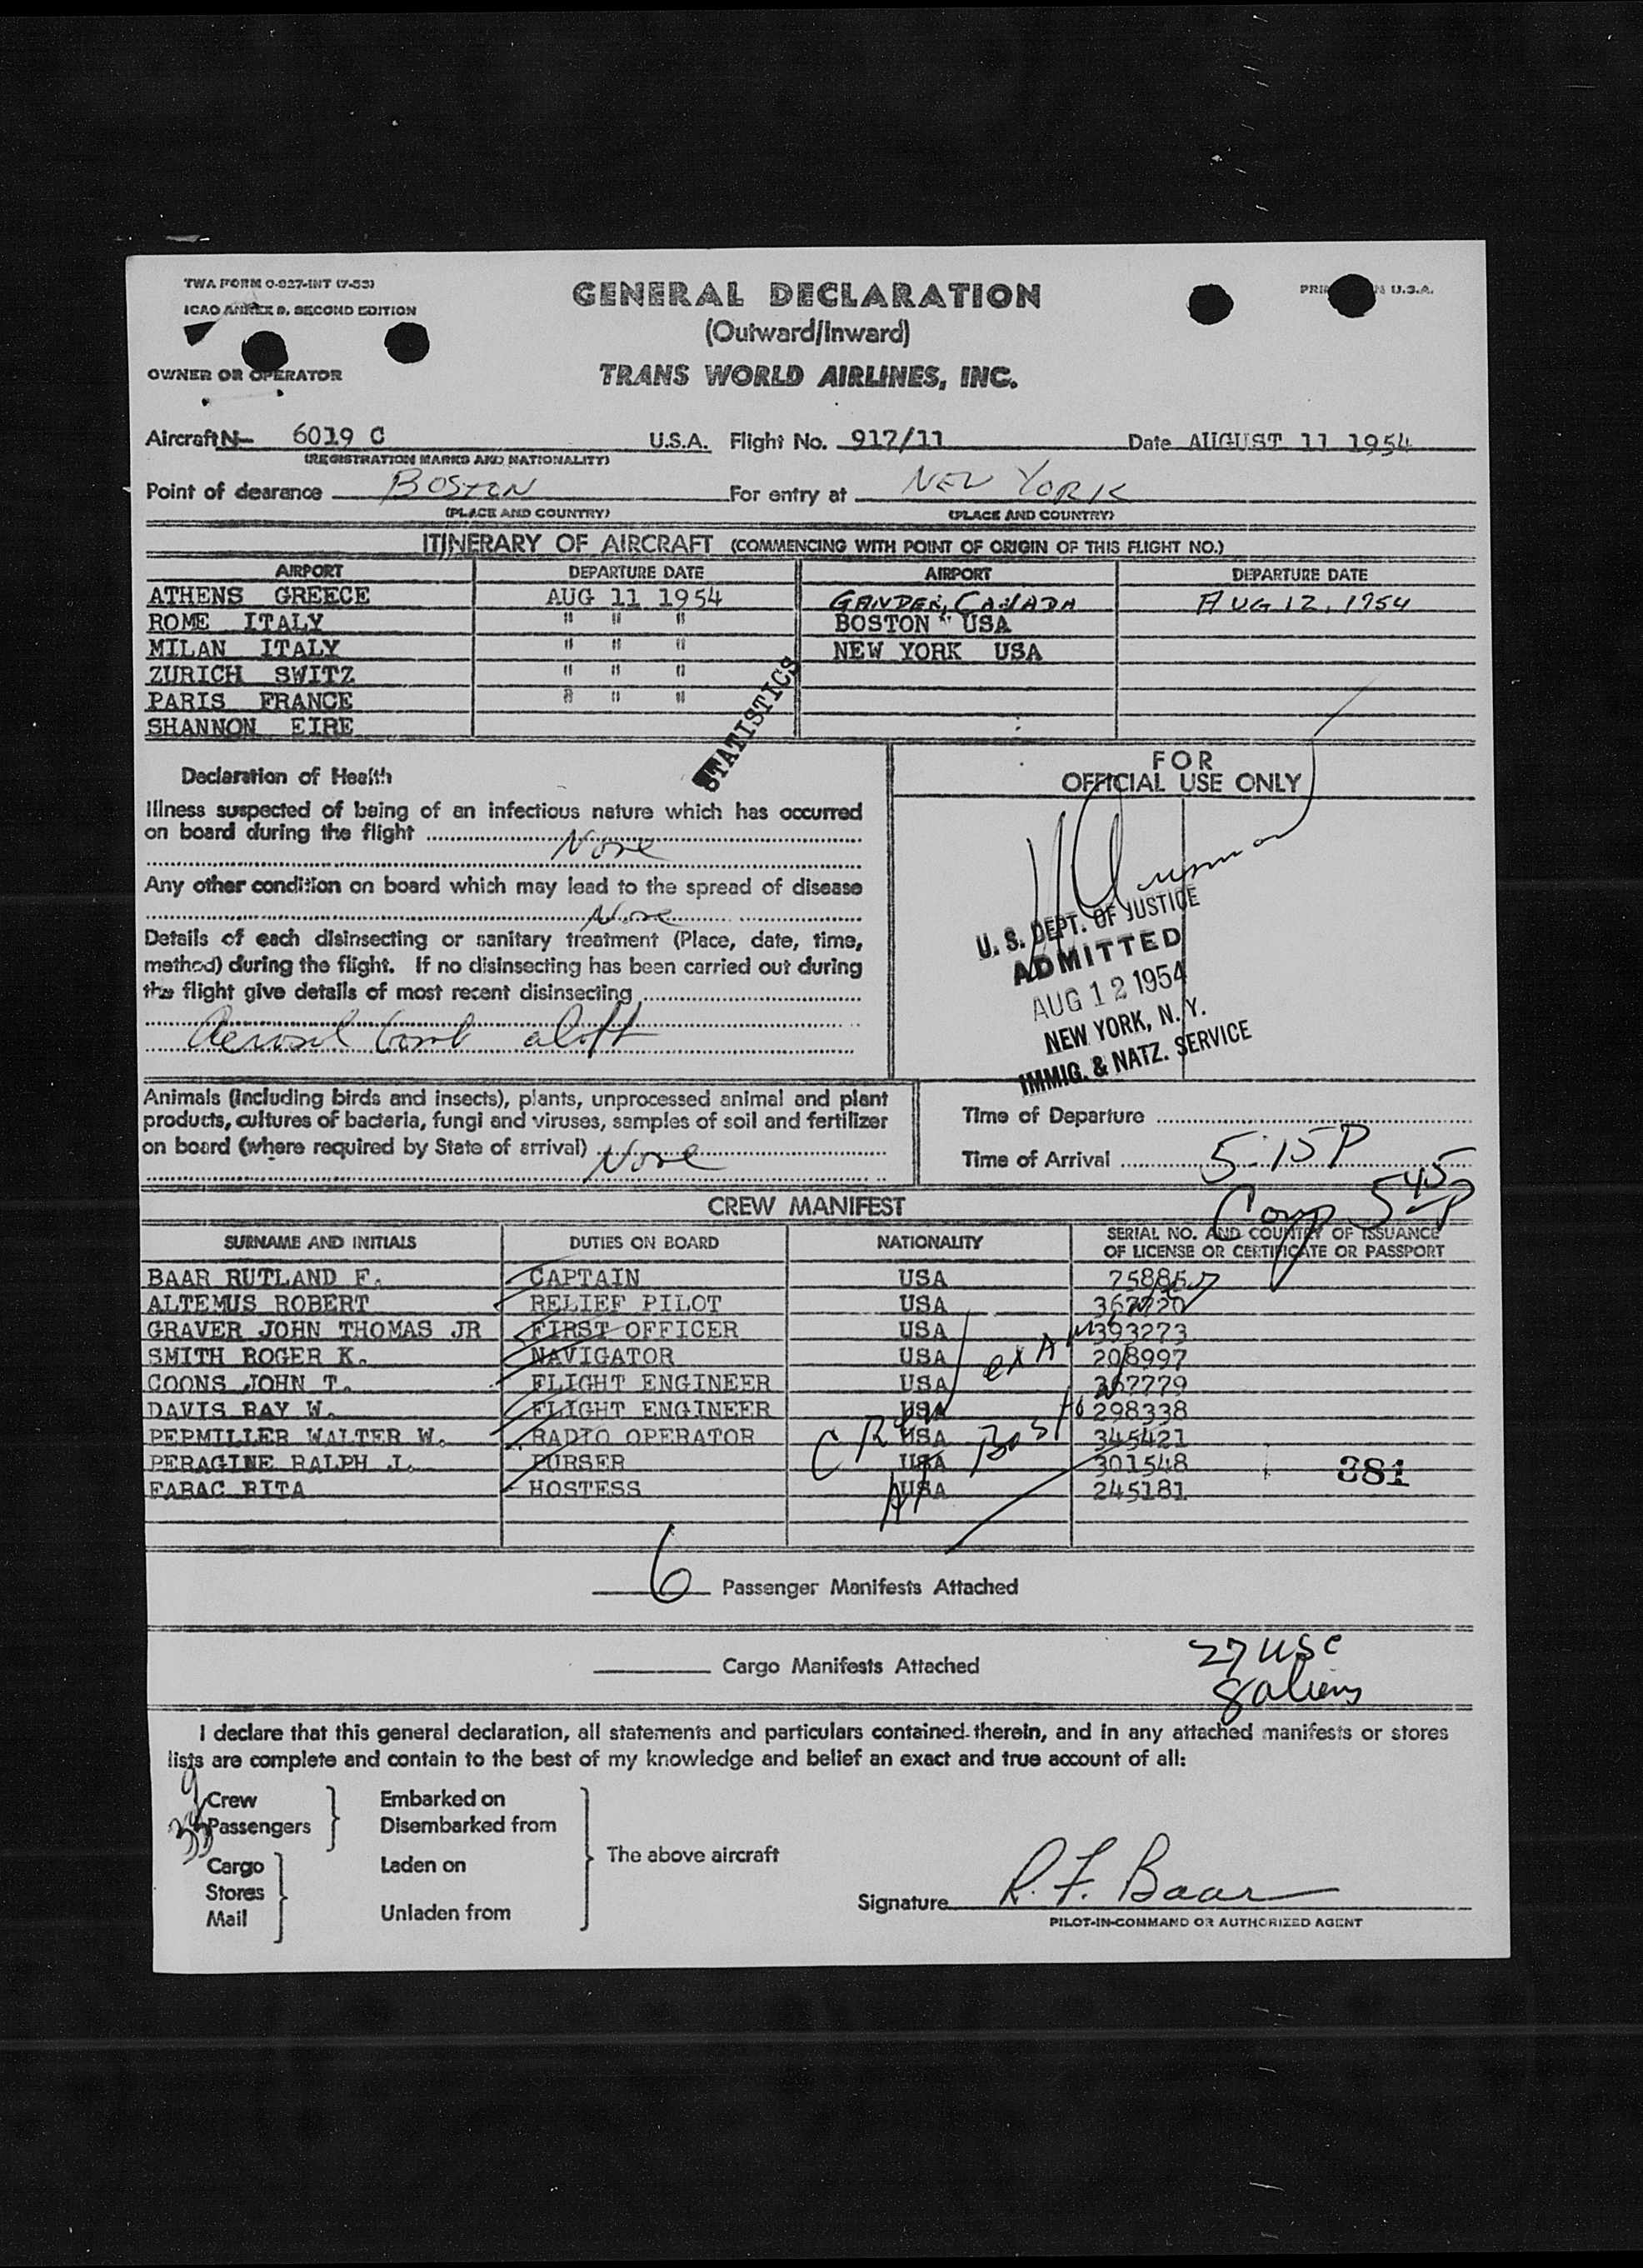 TWA FORM O-827-INT (7-53)
ICAO ANNEX 9, SECOND EDITION
PRINTED IN U.S.A.
GENERAL DECLARATION
(Outward/Inward)
OWNER OR OPERATOR
TRANS WORLD AIRLINES, INC.
Aircraft N- 6019 C U.S.A. Flight No. 917/11 Date AUGUST 11 1954
(REGISTRATION MARKS AND NATIONALITY)
Point of clearance BOSTON For entry at NEW YORK
(PLACE AND COUNTRY) (PLACE AND COUNTRY)
ITINERARY OF AIRCRAFT (COMMENCING WITH POINT OF ORIGIN OF THIS FLIGHT NO.)
AIRPORT DEPARTURE DATE AIRPORT DEPARTURE DATE
ATHENS GREECE AUG 11 1954 GANDER, CANADA AUG 12, 1954
ROME ITALY " " " BOSTON USA
MILAN ITALY " " " NEW YORK USA
ZURICH SWITZ " " "
PARIS FRANCE " " "
SHANNON EIRE
STATISTICS
Declaration of Health
Illness suspected of being of an infectious nature which has occurred
on board during the flight None
Any other condition on board which may lead to the spread of disease
None
Details of each disinsecting or sanitary treatment (Place, date, time,
method) during the flight. If no disinsecting has been carried out during
the flight give details of most recent disinsecting
Aerosol bomb aloft
FOR
OFFICIAL USE ONLY
U. S. DEPT. OF JUSTICE
ADMITTED
AUG 12 1954
NEW YORK, N. Y.
IMMIG. & NATZ. SERVICE
Animals (including birds and insects), plants, unprocessed animal and plant
products, cultures of bacteria, fungi and viruses, samples of soil and fertilizer
on board (where required by State of arrival) None
Time of Departure
Time of Arrival 5:15P
Comp 5 45 P
CREW MANIFEST
SURNAME AND INITIALS DUTIES ON BOARD NATIONALITY SERIAL NO. AND COUNTRY OF ISSUANCE
OF LICENSE OR CERTIFICATE OR PASSPORT
BAAR RUTLAND F. CAPTAIN USA 75885
ALTEMUS ROBERT RELIEF PILOT USA
GRAVER JOHN THOMAS JR FIRST OFFICER USA 393273
SMITH ROGER K. NAVIGATOR USA 208997
COONS JOHN T. FLIGHT ENGINEER USA 367779
DAVIS RAY W. FLIGHT ENGINEER USA 298338
PEPMILLER WALTER W. RADIO OPERATOR USA 345421
PERAGINE RALPH J. PURSER USA 301548
FABAC RITA HOSTESS USA 245181
Crew exam
At Boston
381
6 Passenger Manifests Attached
Cargo Manifests Attached
27 USC
8 aliens
I declare that this general declaration, all statements and particulars contained therein, and in any attached manifests or stores
lists are complete and contain to the best of my knowledge and belief an exact and true account of all:
9 Crew Embarked on
Passengers Disembarked from
The above aircraft
Cargo Laden on
Stores
Mail Unladen from
Signature R. F. Baar
PILOT-IN-COMMAND OR AUTHORIZED AGENT